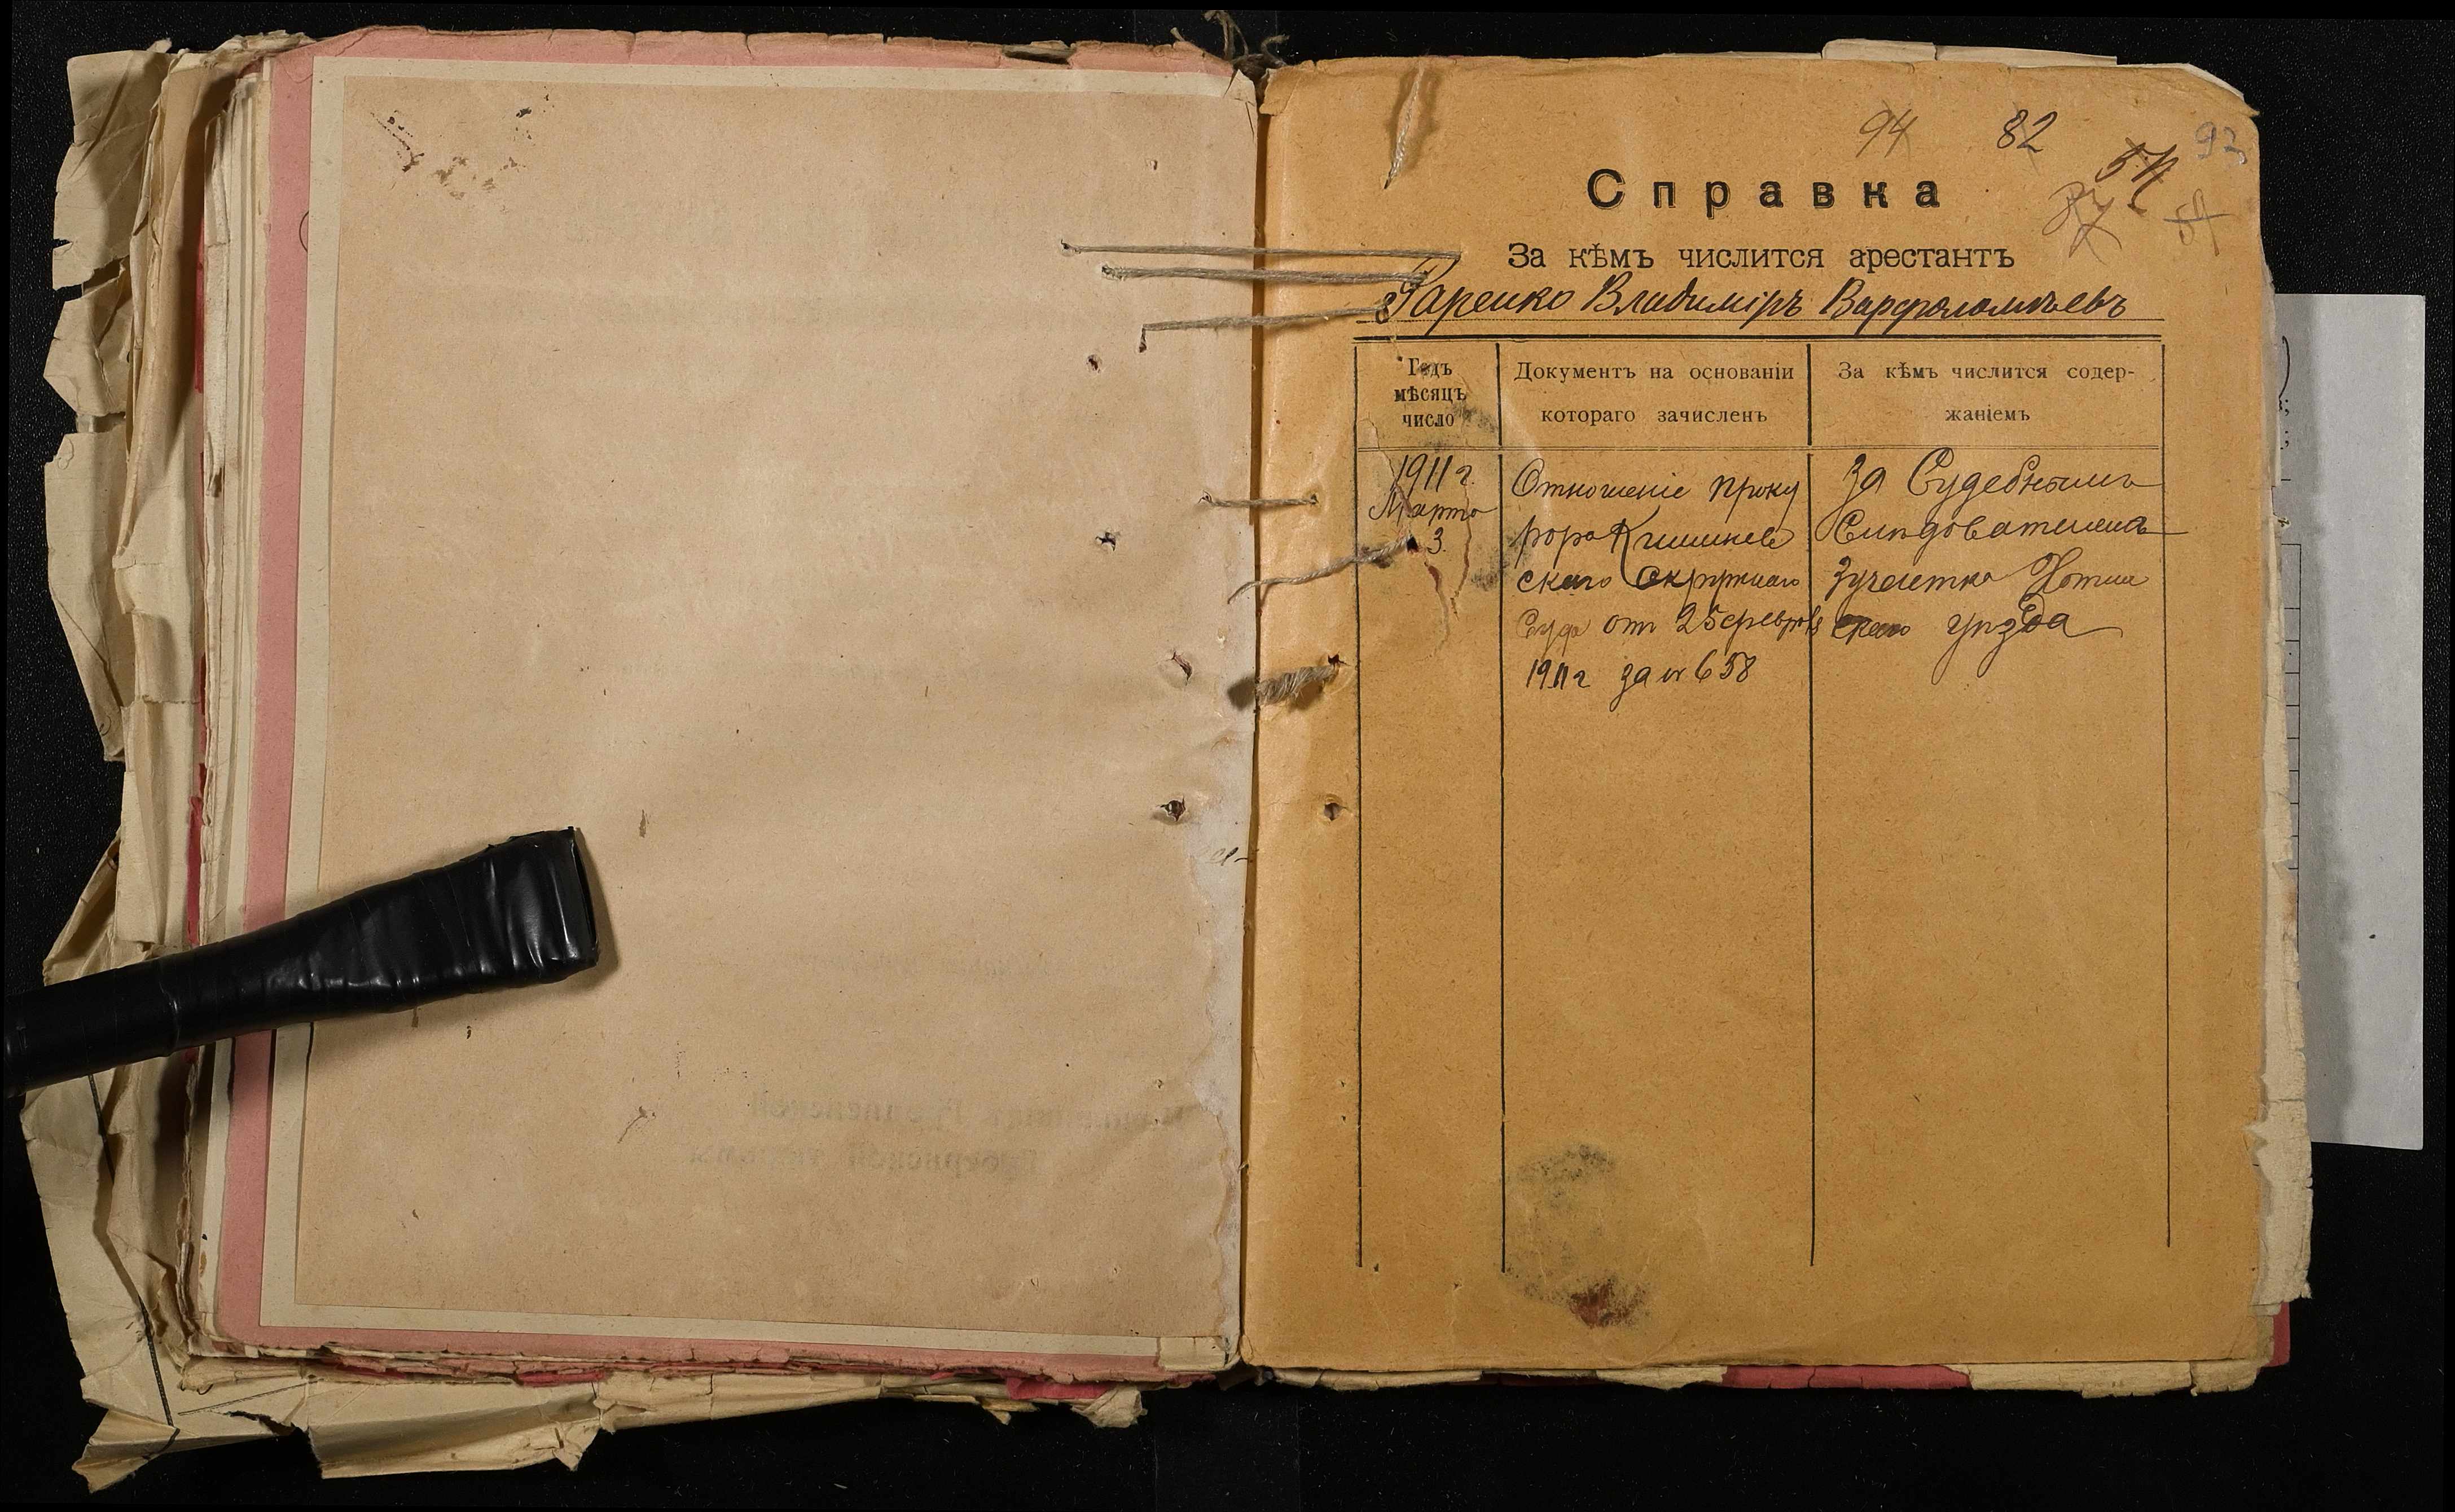 94 82 92
Справка
За кѣмъ числится арестантъ
Паренко Владиміръ Варфоломѣевъ
Годъ
мѣсяцъ
число
Документъ на основаніи
котораго зачисленъ
За кѣмъ числится содер-
жаніемъ
1911 г.
Марта
3.
Отношеніе проку
рора Кишинев
скаго Окружнаго
Суда от 25 февраля
1911 г за № 658
За Судебнымъ
Слѣдователемъ
3 участка Хотин
скаго уѣзда